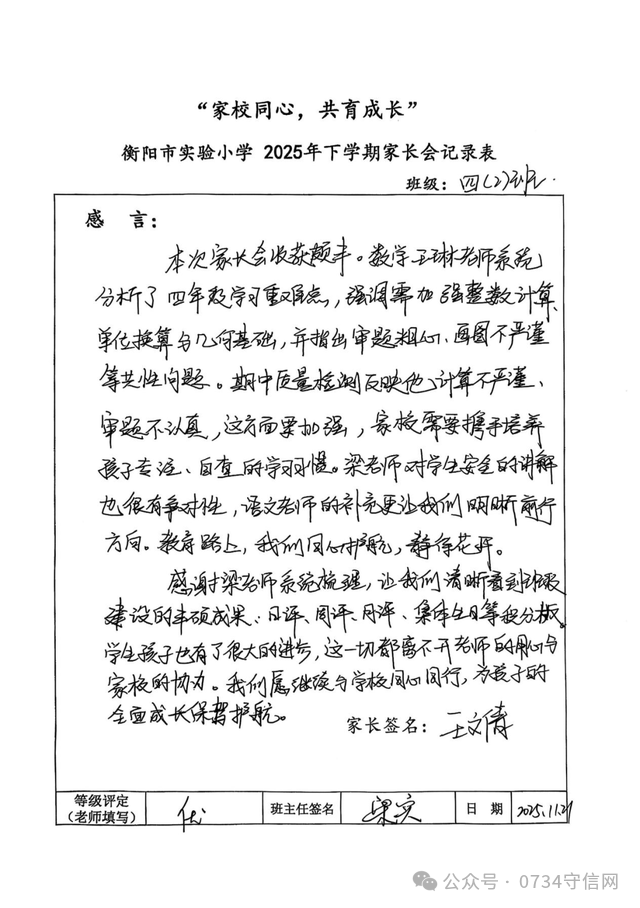 “家校同心，共育成长”
衡阳市实验小学 2025年下学期家长会记录表
班级：四（2）班.
感 言：
本次家长会收获颇丰。数学王琳老师系统
分析了四年级学习重难点，强调需加强整数计算、
单位换算与几何基础，并指出审题粗心、画图不严谨
等共性问题。期中质量检测反映他计算不严谨、
审题不认真，这方面要加强，家校需要携手培养
孩子专注、自查的学习习惯。梁老师对学生安全的讲解
也很有争对性，语文老师的补充更让我们明晰前行
方向。教育路上，我们同心护航，静待花开。
感谢梁老师系统梳理，让我们清晰看到班级
建设的丰硕成果：日评、周评、月评、集体生日等积分板。
学生孩子也有了很大的进步，这一切都离不开老师的用心与
家校的协力。我们愿继续与学校同心同行，为孩子的
全面成长保驾护航。
家长签名：王文倩
等级评定
（老师填写）
优
班主任签名
梁实
日 期
2025.11.21
公众号·0734守信网